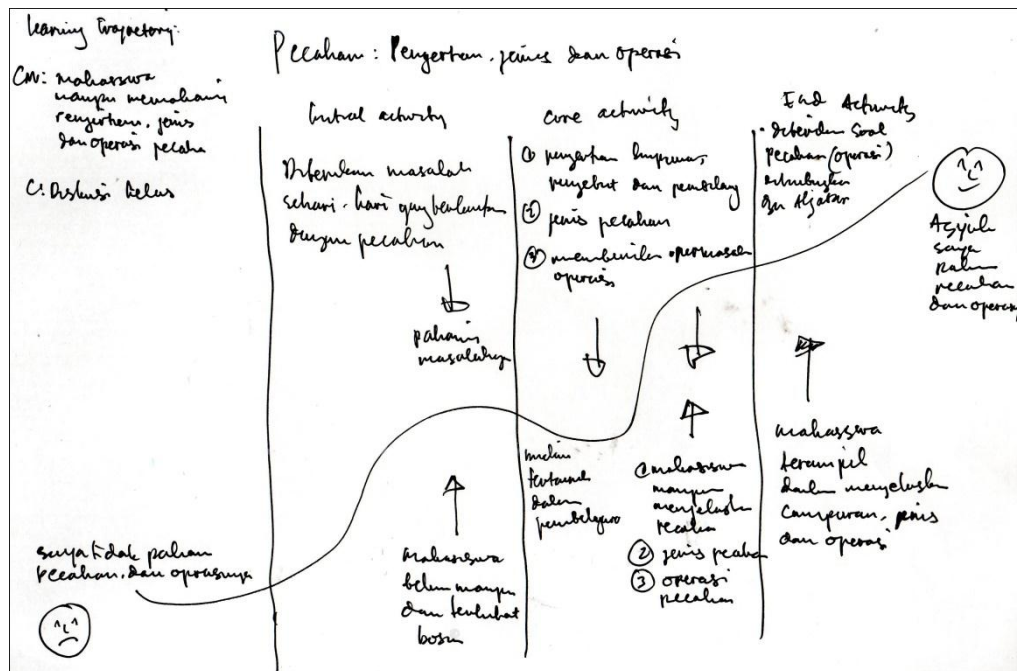 Learning Trajectory:
Pecahan: Pengertian, jenis dan operasi
CM: mahasiswa
mampu memahami
pengertian, jenis
dan operasi pecahan
C: Diskusi kelas
Initial activity
Diberikan masalah
sehari-hari yang berkaitan
dengan pecahan
pahami
masalahnya
mahasiswa
belum mampu
dan terlihat
bosan
saya tidak paham
pecahan, dan operasinya
core activity
① pengertian
penyebut dan pembilang
② jenis pecahan
③ memberikan operasi
mulai
tertarik
dalam
① mahasiswa
mampu
menjelaskan
pecahan
② jenis pecahan
③ operasi
pecahan
End Activity
• diberikan soal
pecahan (operasi)
dihubungkan
dgn Aljabar
mahasiswa
terampil
dalam menyelesaikan
campuran, jenis
dan operasi
Asyik
saya
paham
pecahan
dan operasi